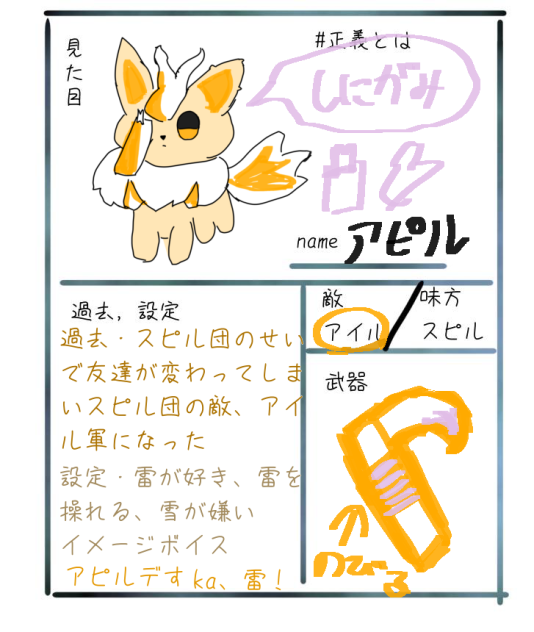 見た目
#正義とは
しにがみ
name アピル
過去,設定
過去・スピル団のせい
で友達が変わってしま
いスピル団の敵、アイ
ル軍になった
設定・雷が好き、雷を
操れる、雪が嫌い
イメージボイス
アピルデすka、雷！
敵/味方
アイル スピル
武器
のびる